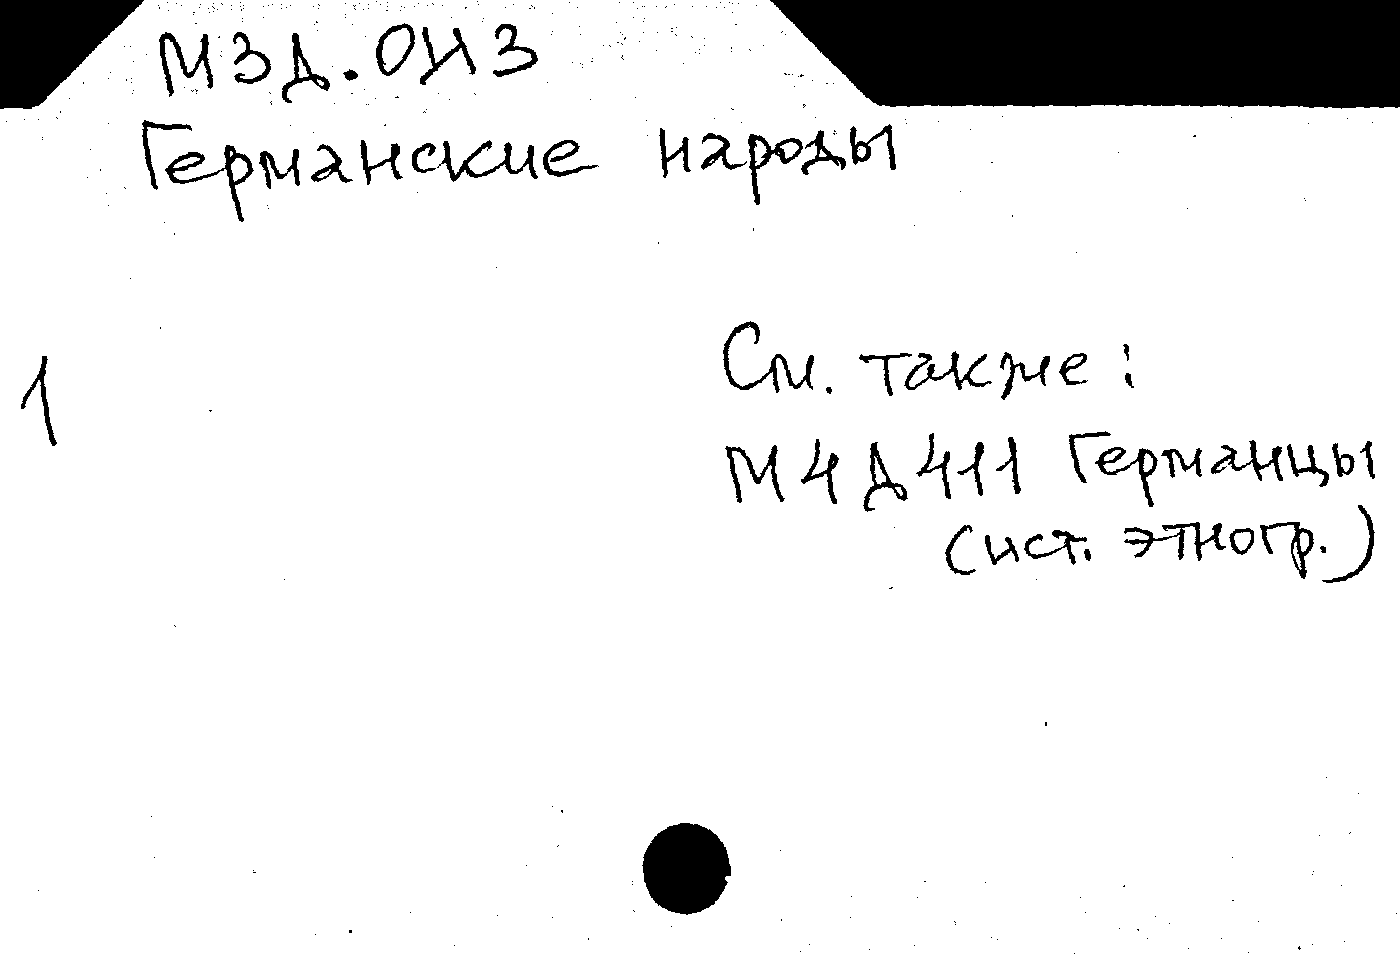 М3Д.043
Германские народы
См. также:
1
М4Д411 Германцы
(ист. этногр.)